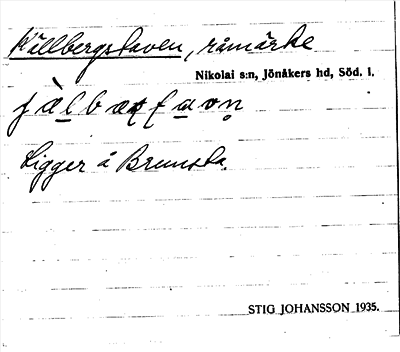 Källbergstaven, råmärke
Nikolai s:n, Jönåkers hd, Söd. l.
Ligger å Brunsta.
STIG JOHANSSON 1935.